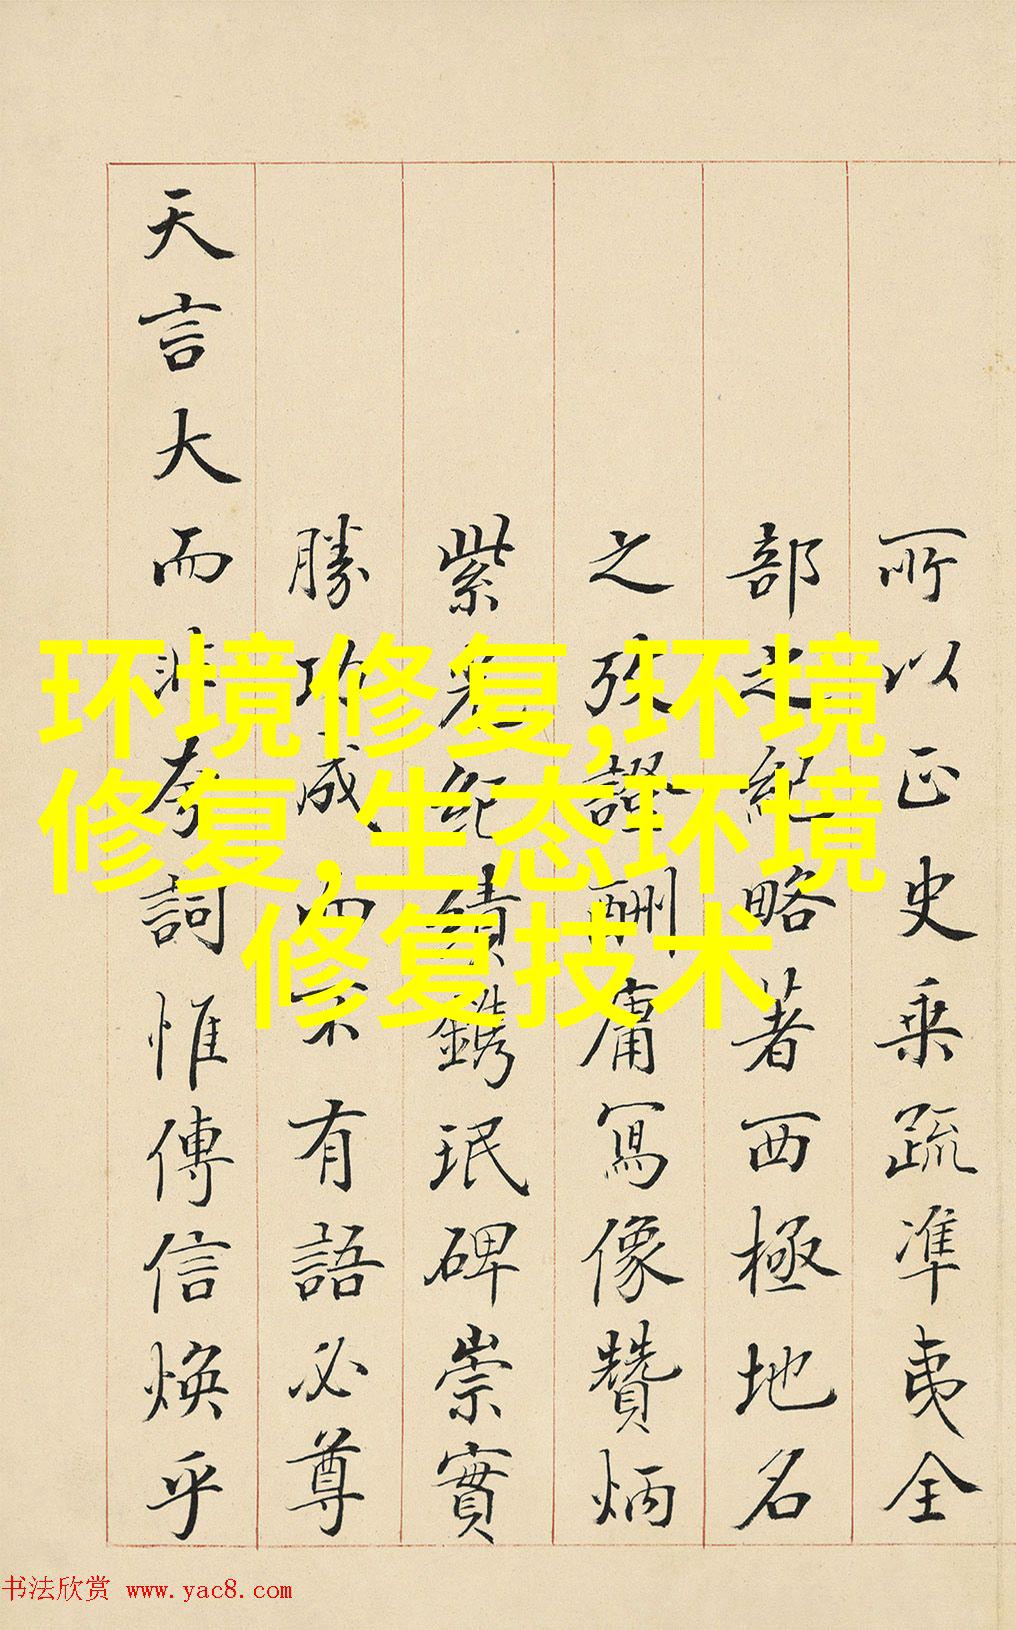 所以正史乘疏準夷全
部之紀略著西極地名
之酬庸寫像贊炳
紫光紀績鐫珉碑崇實
勝功成而不有語必尊
天言大而非夸詞惟傳信煥乎
环境修复,环境
修复,生态环境
修复技术
书法欣赏 www.yac8.com